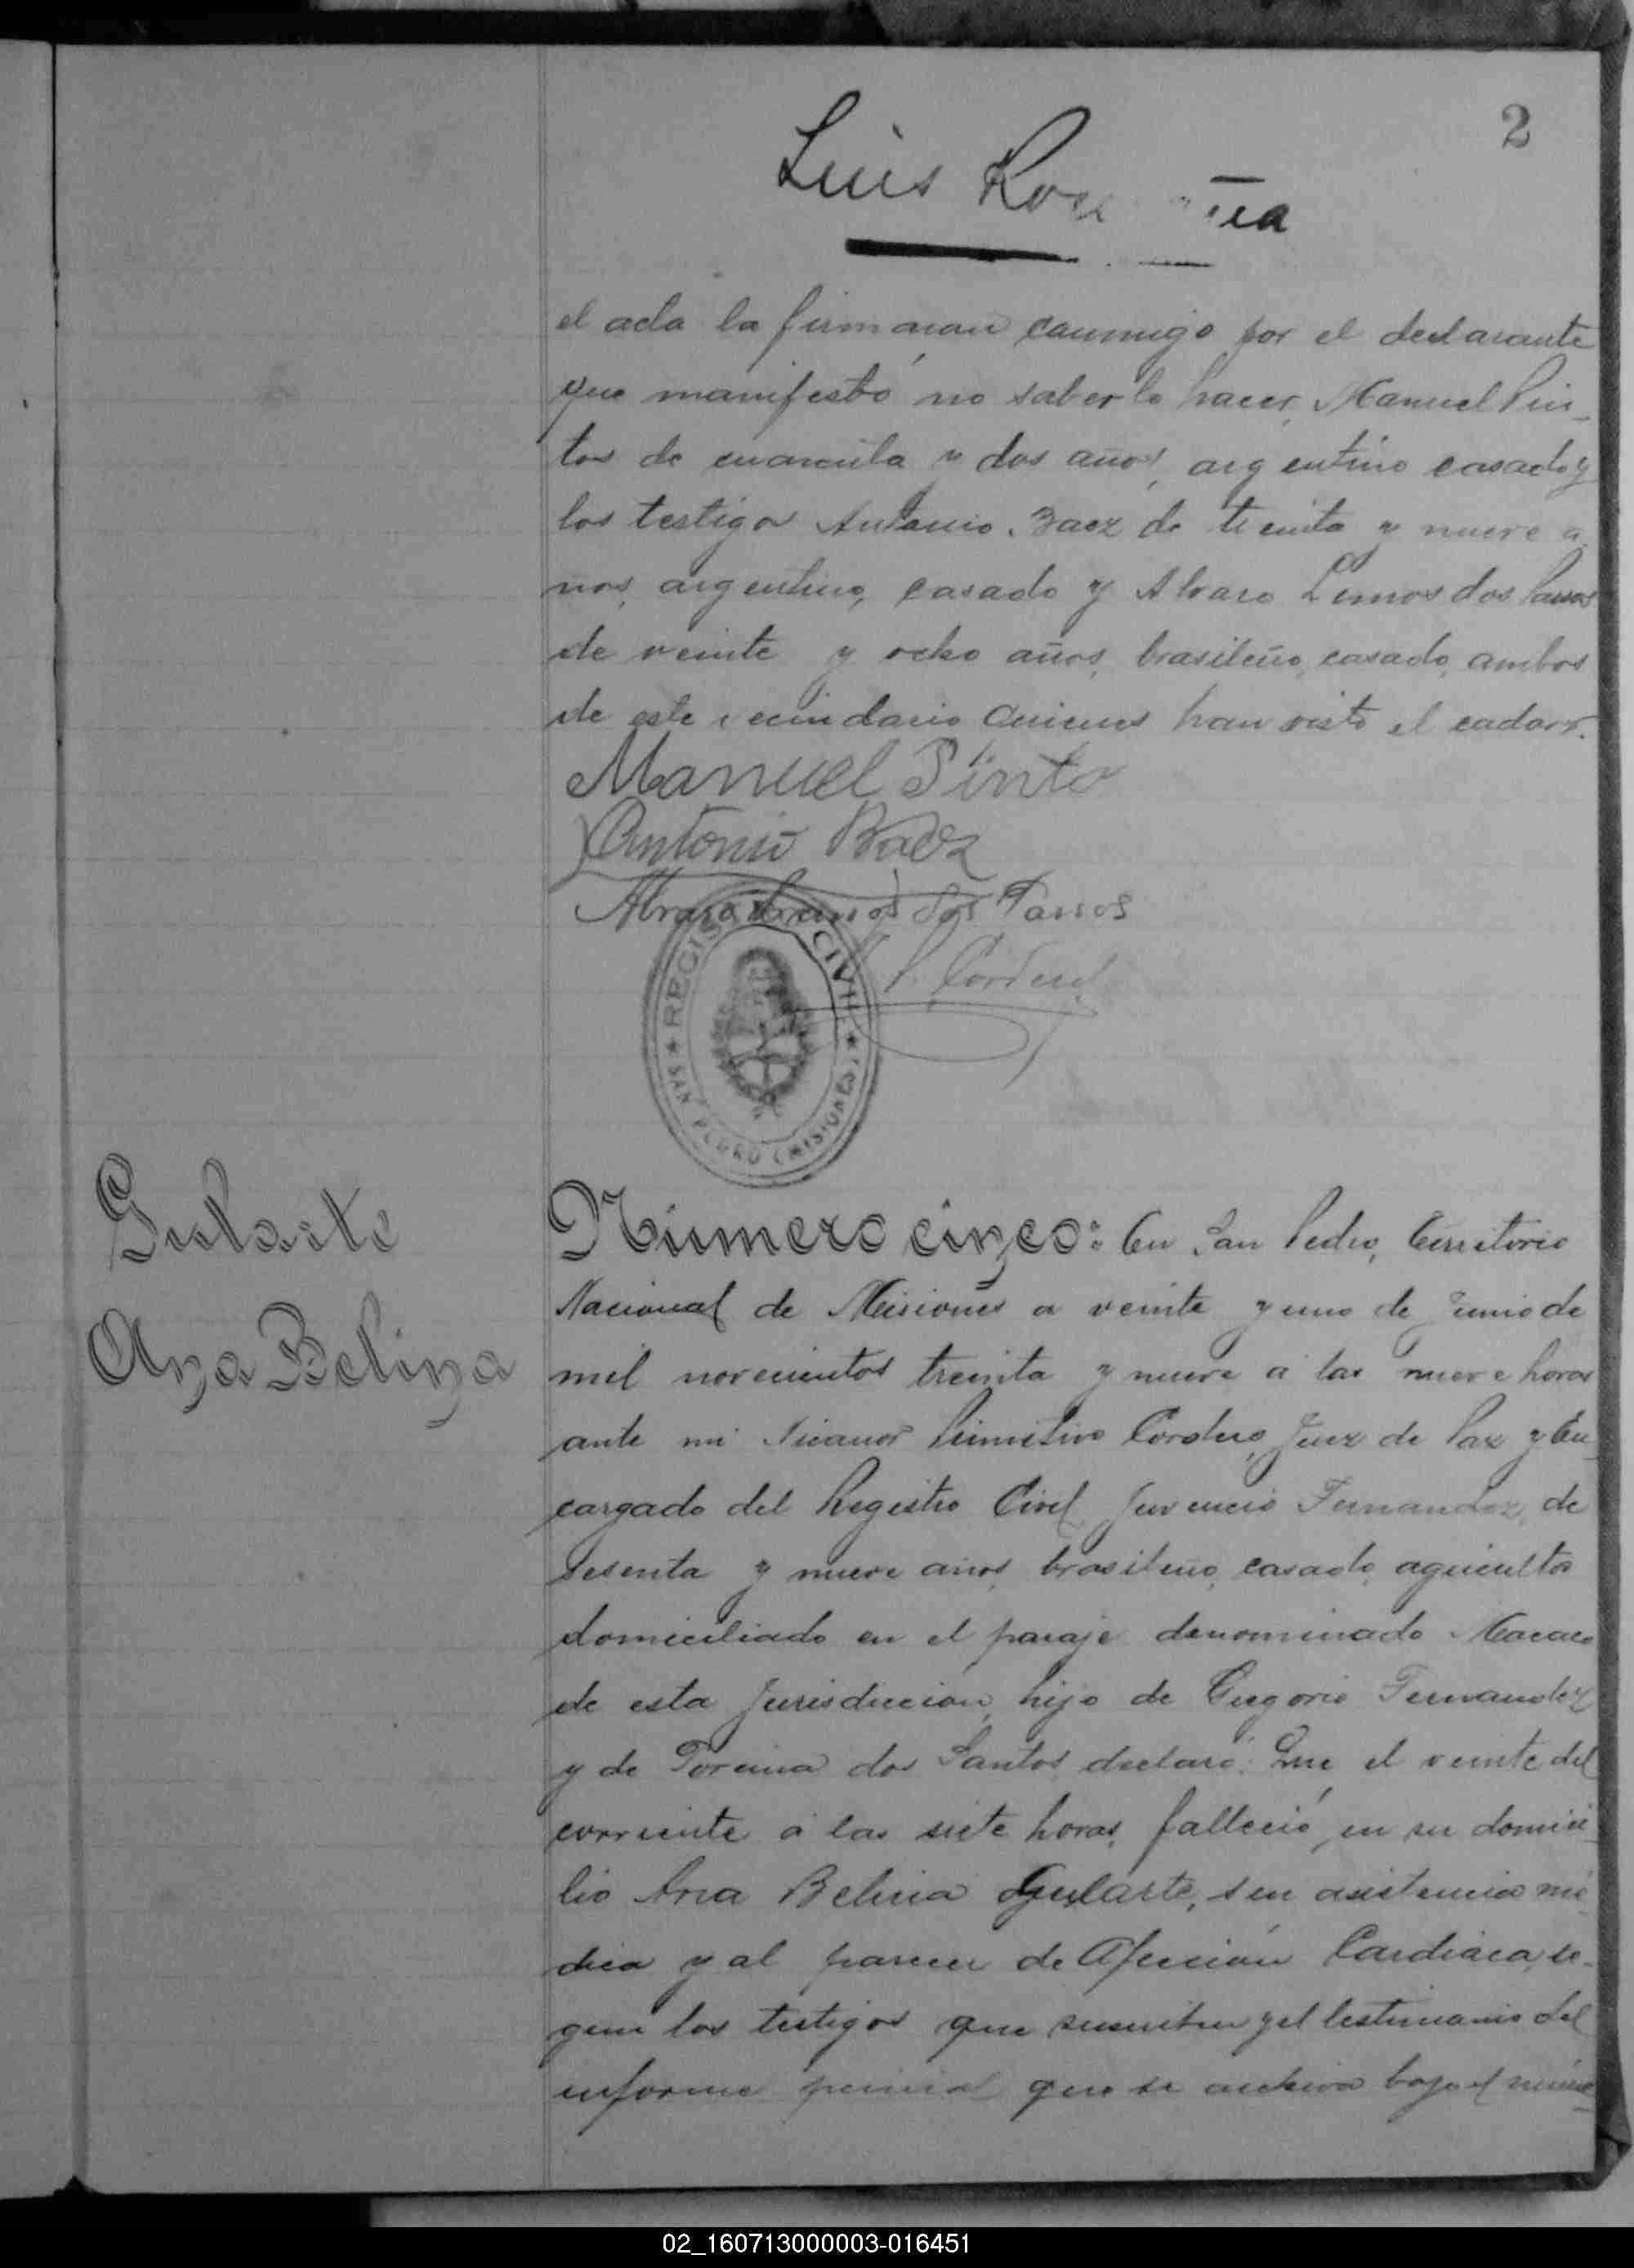 2
Luis
el acta la firmaran conmigo por el declarante
que manifestó no saberlo hacer, Manuel Pin-
tos de cuarenta y dos años, argentino casado y
los testigos Antonio Baez de treinta y nueve a
ños, argentino, casado y Alvaro Lemos dos Passos
de veinte y ocho años, brasileño, casado, ambos
de este vecindario quienes han visto el cadaver.
Manuel Pinto
Antonio Baez
Alvaro Lemos dos Passos
P. Cordero
REGISTRO CIVIL
SAN PEDRO (MISIONES)
Gularte
Ana Belina
Número cinco: En San Pedro, Territorio
Nacional de Misiones a veinte y uno de Junio de
mil novecientos treinta y nueve a las nueve horas
ante mi Nicanor Primitivo Cordero, Juez de Paz y En-
cargado del Registro Civil, Juvencio Fernandez, de
sesenta y nueve años, brasileño, casado, agricultor
domiciliado en el paraje denominado Macaco
de esta Jurisdiccion, hijo de Gregorio Fernandez
y de dos Santos declaró: Que el veinte del
corriente a las siete horas, falleció en su domici-
lio Ana Belina Gularte, sin asistencia mé-
dica y al parecer de Afeccion Cardiaca, se-
gun los testigos que suscriben y el testimonio del
informe que se archiva bajo el núme-
02_160713000003-016451